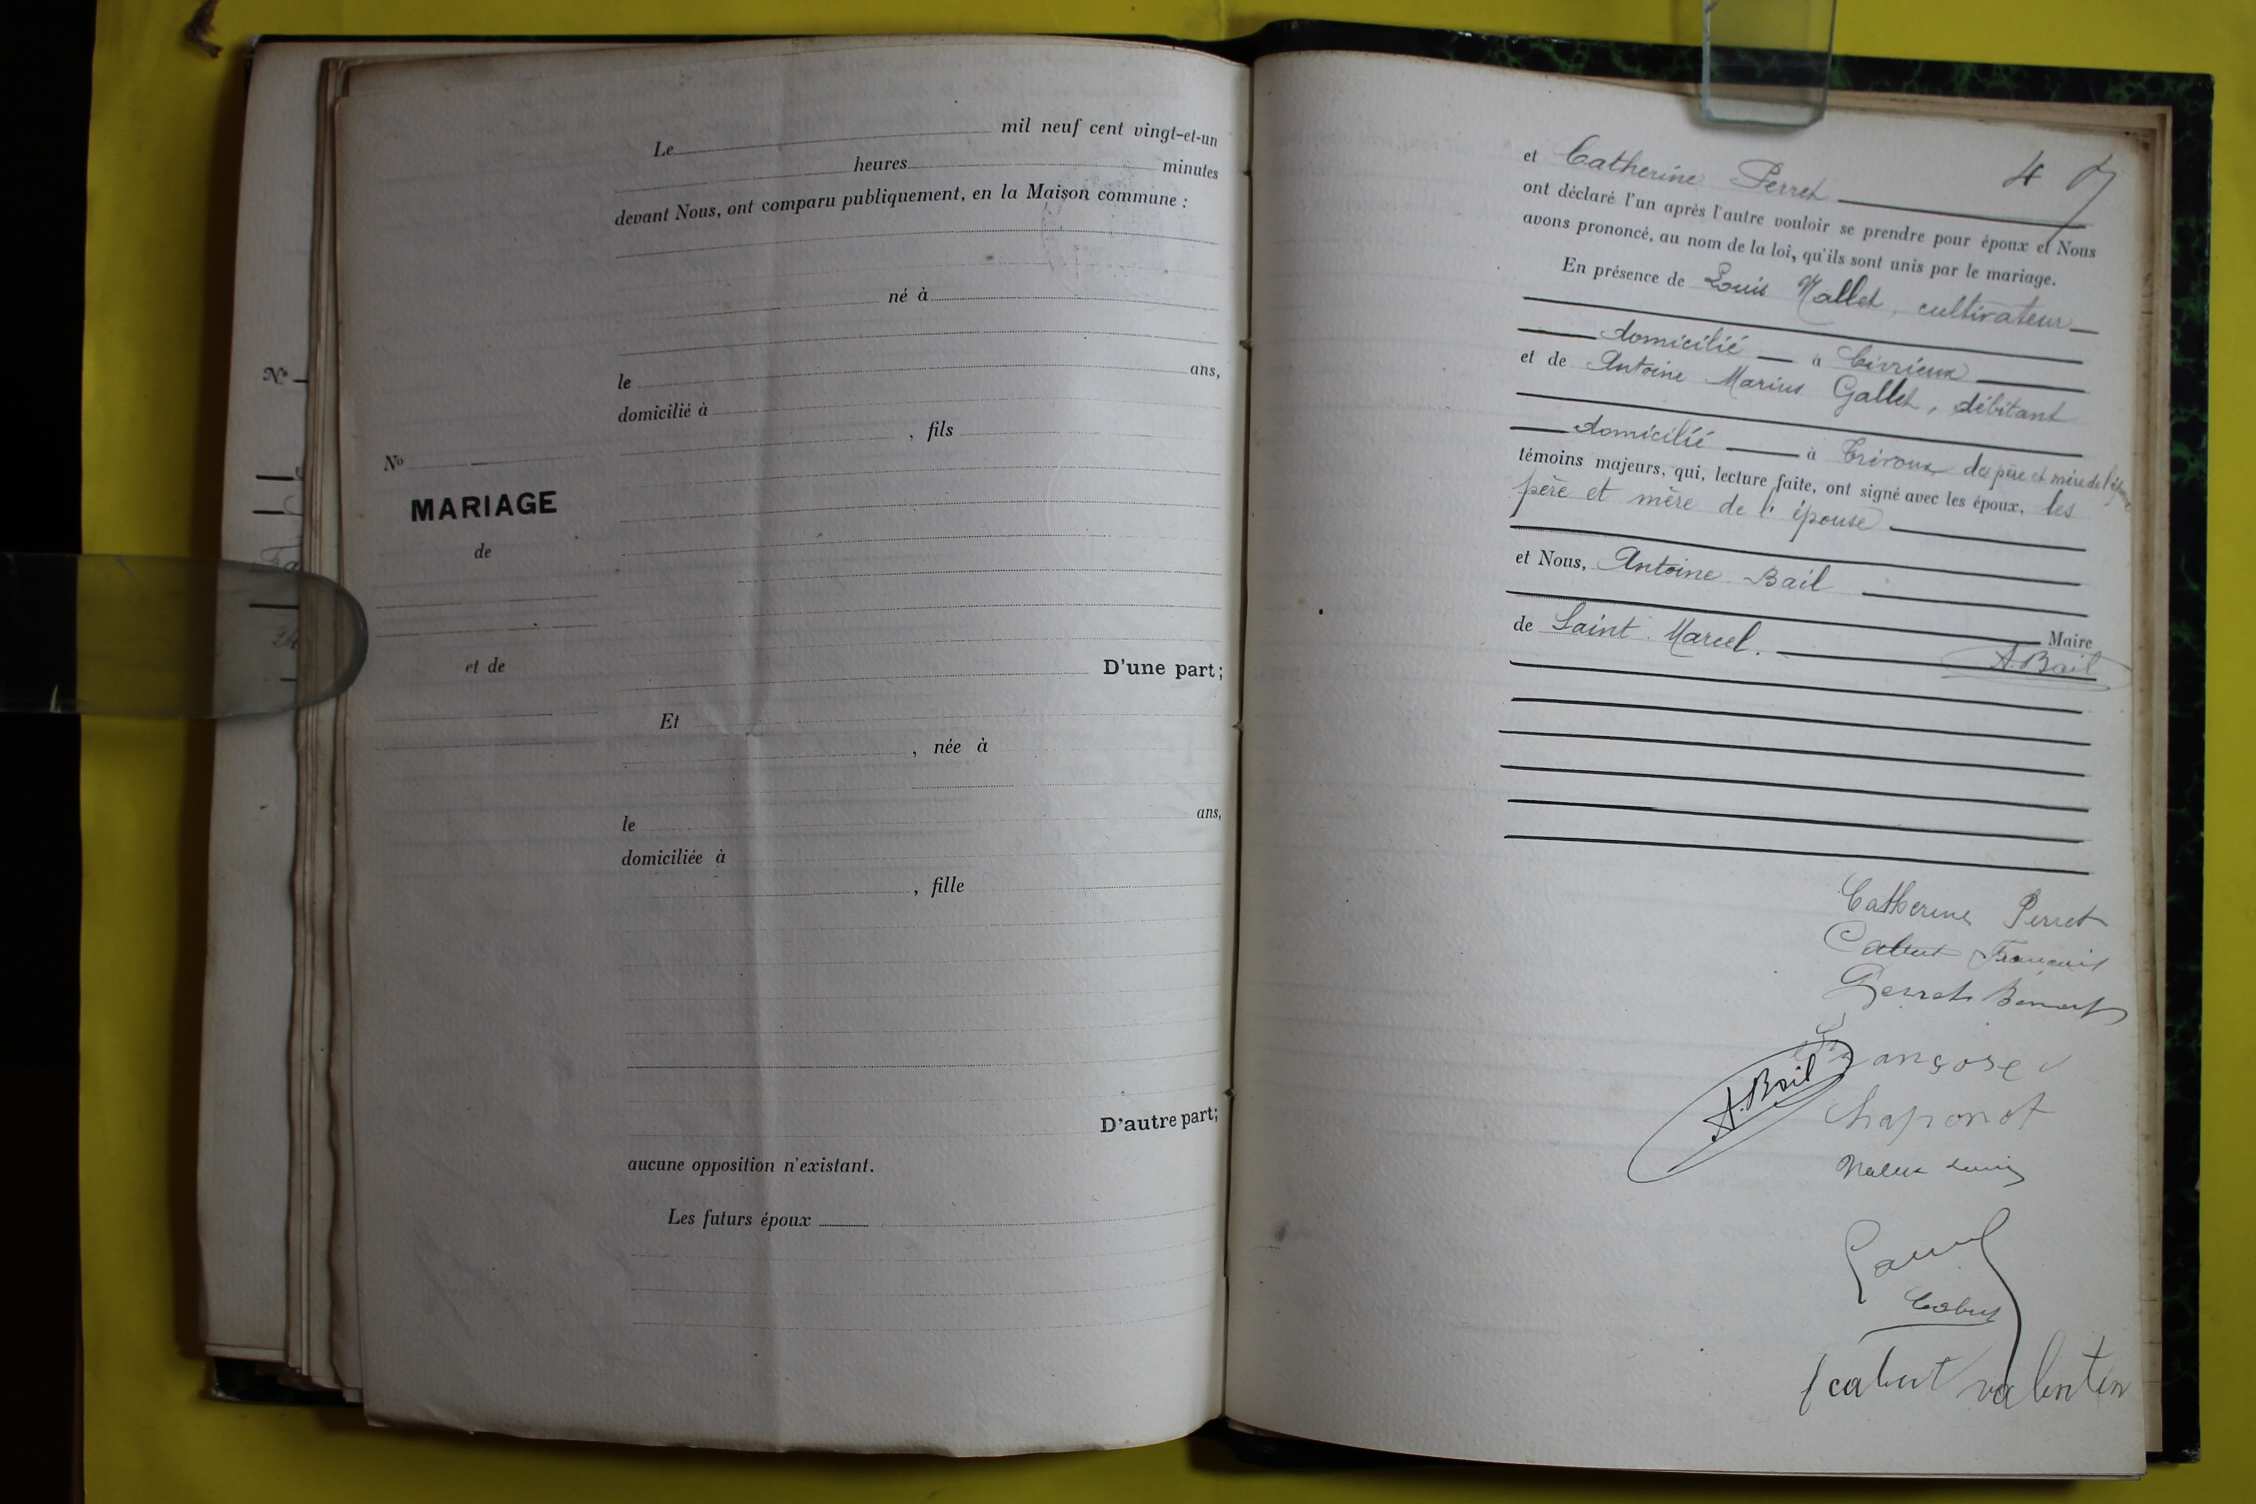 N°
Le mil neuf cent vingt-et-un
heures minutes
devant Nous, ont comparu publiquement, en la Maison commune :
né à
le ans,
domicilié à
, fils
N°
MARIAGE
de
et de
D'une part;
Et
, née à
le ans,
domiciliée à
, fille
D'autre part;
aucune opposition n'existant.
Les futurs époux
4
et Catherine Perret
ont déclaré l'un après l'autre vouloir se prendre pour époux et Nous
avons prononcé, au nom de la loi, qu'ils sont unis par le mariage.
En présence de Louis Mallet, cultivateur
domicilié à Civrieux
et de Antoine Marius Gallet, débitant
domicilié à Trévoux des père et mère de l'époux
témoins majeurs, qui, lecture faite, ont signé avec les époux, les
père et mère de l'épouse
et Nous, Antoine Bail
Maire
de Saint Marcel.
A. Bail
Catherine Perret
Cabut François
Perret Benoit
Françoise
A. Bail
Chaponot
Mallet Louis
Cabut
Cabut valentin